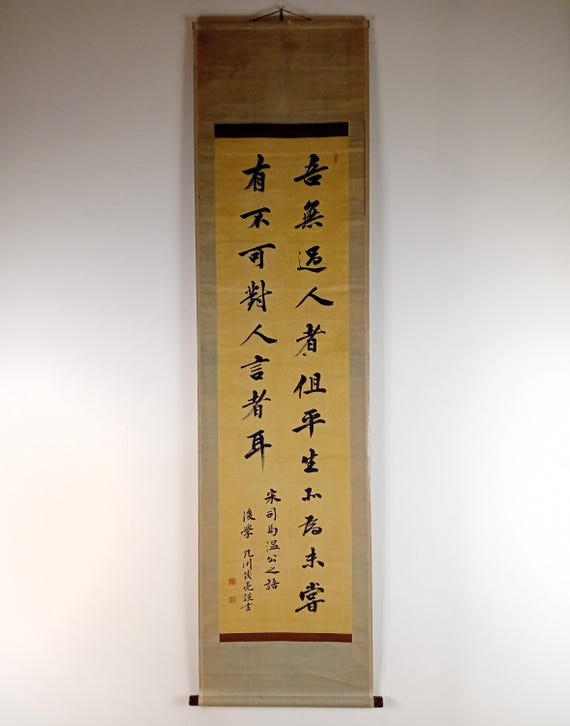 吾無過人者但平生所為未嘗
有不可對人言者耳
宋司馬温公之語
後學 九川茂亮謹書